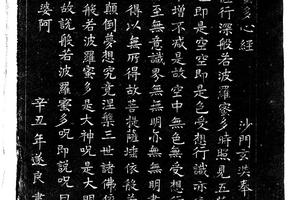 多心經 沙門玄奘奉
行深般若波羅蜜多時照見五
即是空空即是色受想行識亦
增不減是故空中無色無受想行
至無意識界無無明亦無無明
得以無所得故菩提薩埵依般若
顛倒夢想究竟涅槃三世諸佛依
般若波羅蜜多是大神呪是大明
故說般若波羅蜜多呪即說呪曰
婆阿 辛丑年遂良書